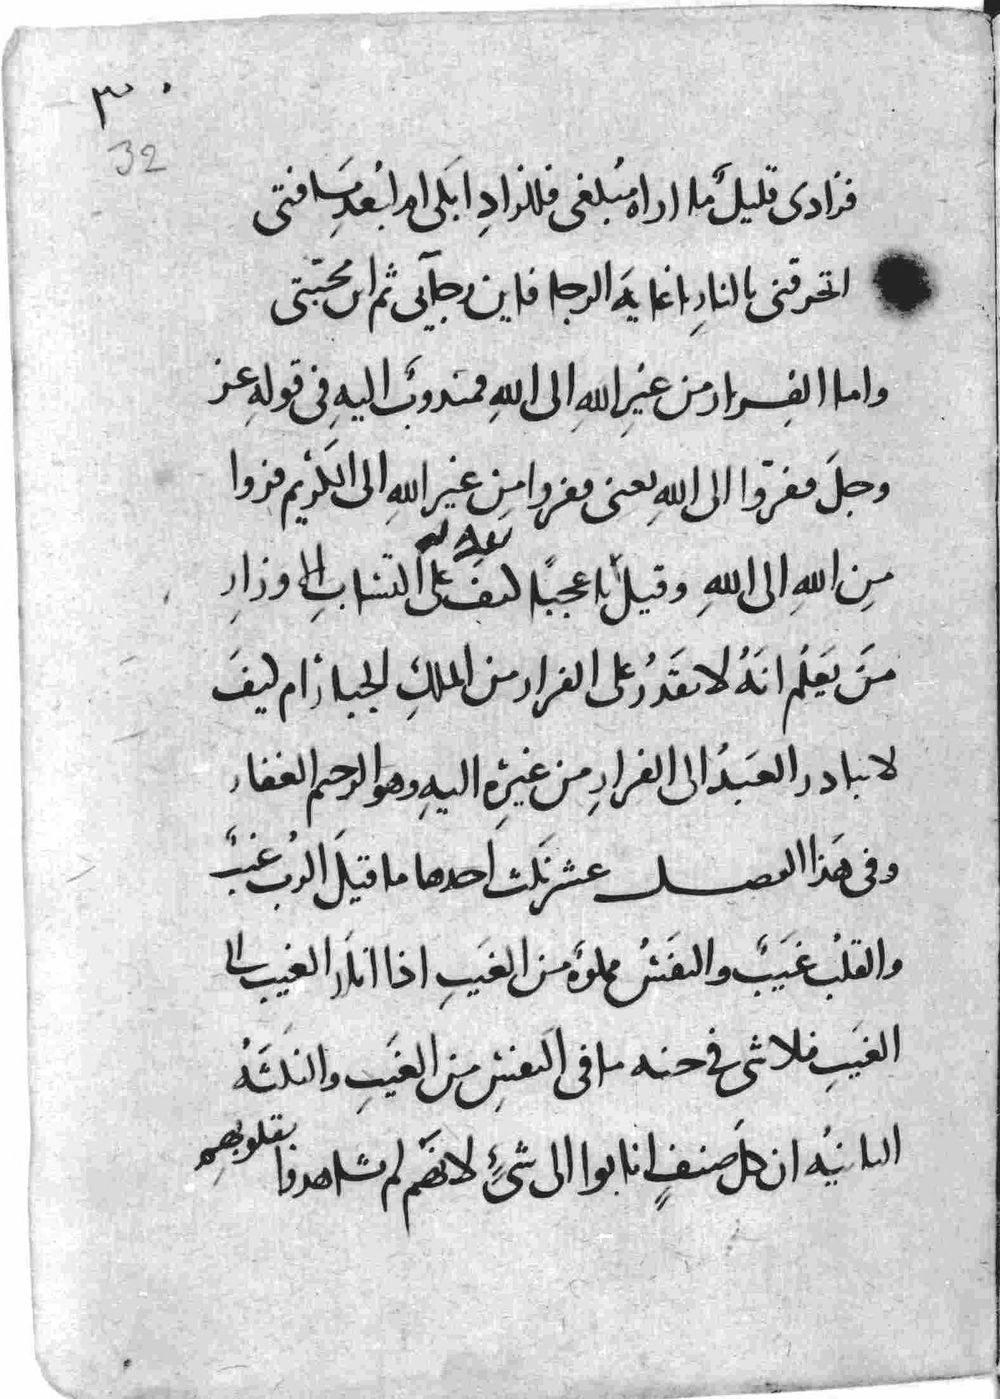 ٣٠
32
فزادى قليلٌ ما اراه مُبلغى فللزادِ ابكى ام لبُعدِ مسَافتى
اتحرقنى بالنارِ ياغاية الرجا فاين رجآيى ثم اين محبّتى
واما الفِرار من غيرِ اللهِ الى اللهِ فمندوبٌ اليهِ فى قولهِ عز
وجلَ ففرّوا الى اللهِ يعنى ففروا مِن غيرِ اللهِ الى الكريم فروا
مِن اللهِ الى اللهِ وقيل يا عجبًا كيف على اكتساب الاوزارِ
مَن يَعلَم انهُ لا يقدَرُ على الفرار من الملكِ الجبار ام كيفَ
لا يبادر العبَدُ الى الفرارِ من غيرِهِ اليهِ وهو الرحيم الغفار
وفى هَذا الفصل عشر نكت احدها ما قيلَ الربُ غيبٌ
والقلبُ غَيَبٌ والنفَسُ مملوةٌ من العَيبِ اذا انارَ الغيب الى
الغيَبِ فلاشى فى جنبه ما فى النفسِ من العَيبِ والنكتَهُ
الثانيه ان كلَ صنفٍ انابوا الى شئٍ لانهَم لم يشاهدوا بقلوبهم